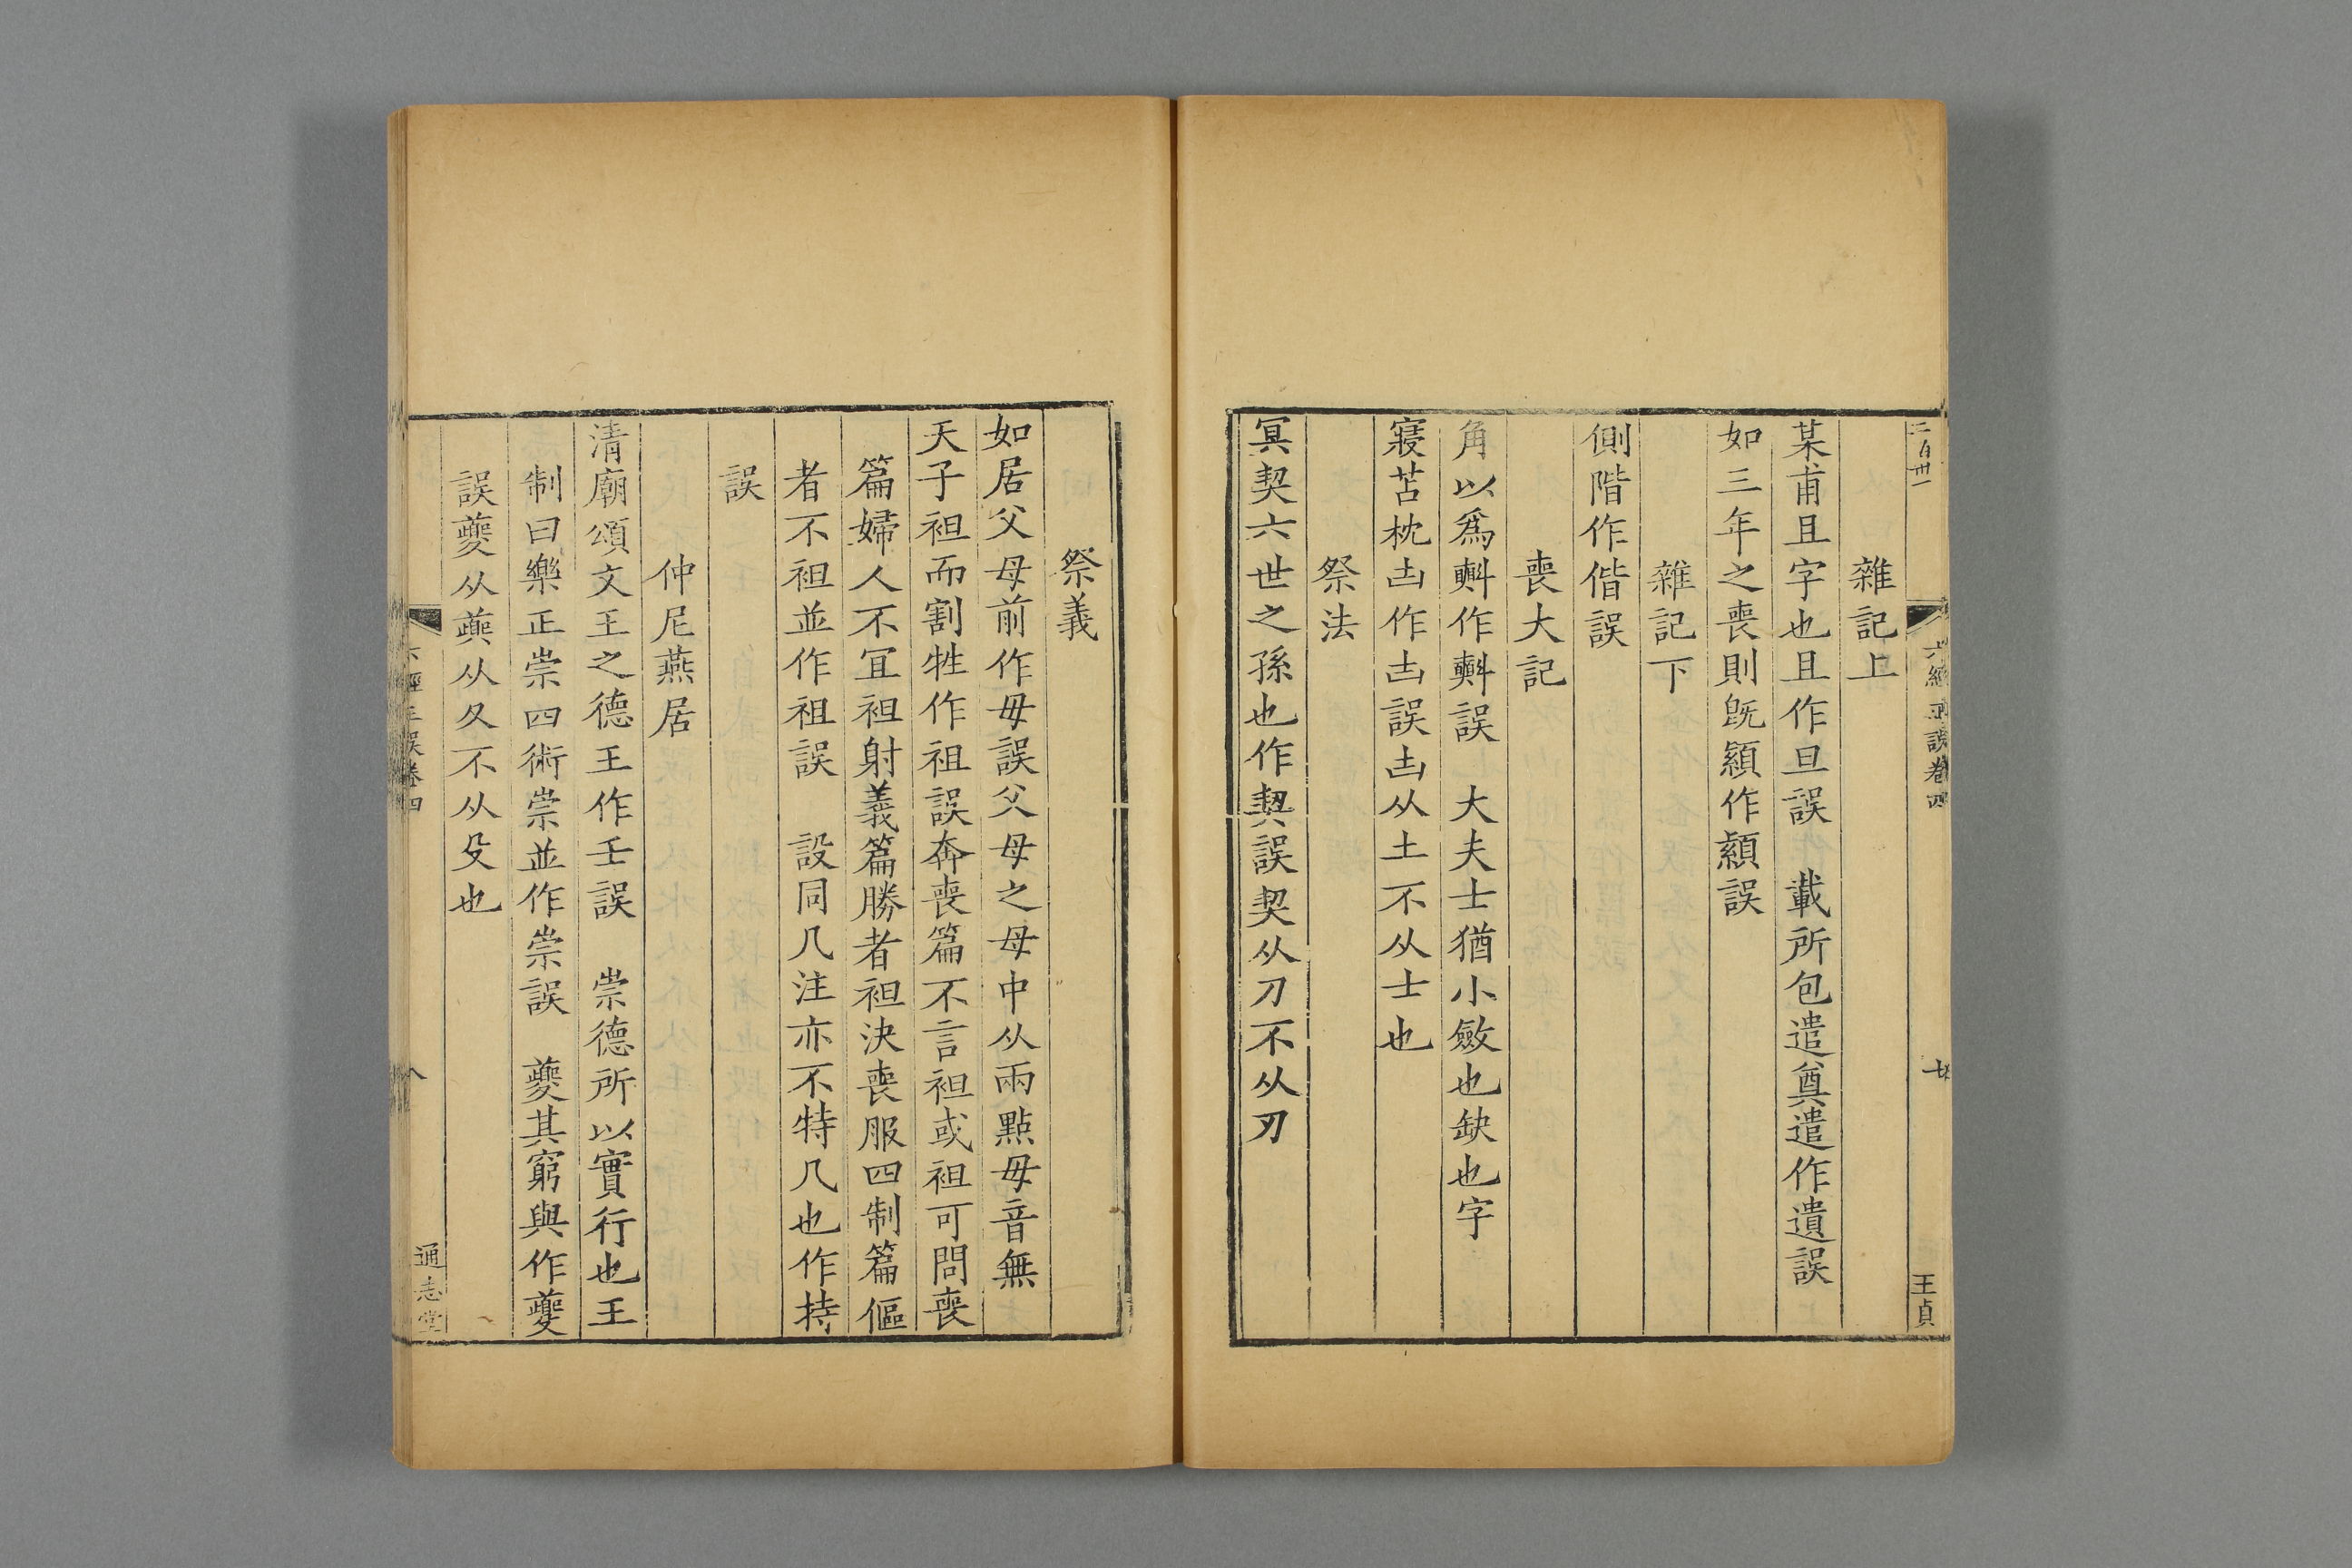 二百卅一
六經正誤卷四
七
王貞
雜記上
某甫且字也且作旦誤　載所包遣奠遣作遺誤
如三年之喪則既顈作顈誤
雜記下
側階作偕誤
喪大記
角以爲㪺作㪺誤　大夫士猶小斂也缺也字
寢苫枕凷作凷誤凷从土不从士也
祭法
冥契六世之孫也作契誤契从刀不从刃
祭義
如居父母前作毋誤父母之母中从兩點毋音無
天子袒而割牲作祖誤奔喪篇不言袒或袒可問喪
篇婦人不冝袒射義篇勝者袒決喪服四制篇傴
者不袒並作祖誤　設同几注亦不特几也作持
誤
仲尼燕居
清廟頌文王之德王作壬誤　崇德所以實行也王
制曰樂正崇四術崇並作崇誤　夔其窮與作夔
誤夔从䕫从夂不从殳也
六經正誤卷四
八
通志堂